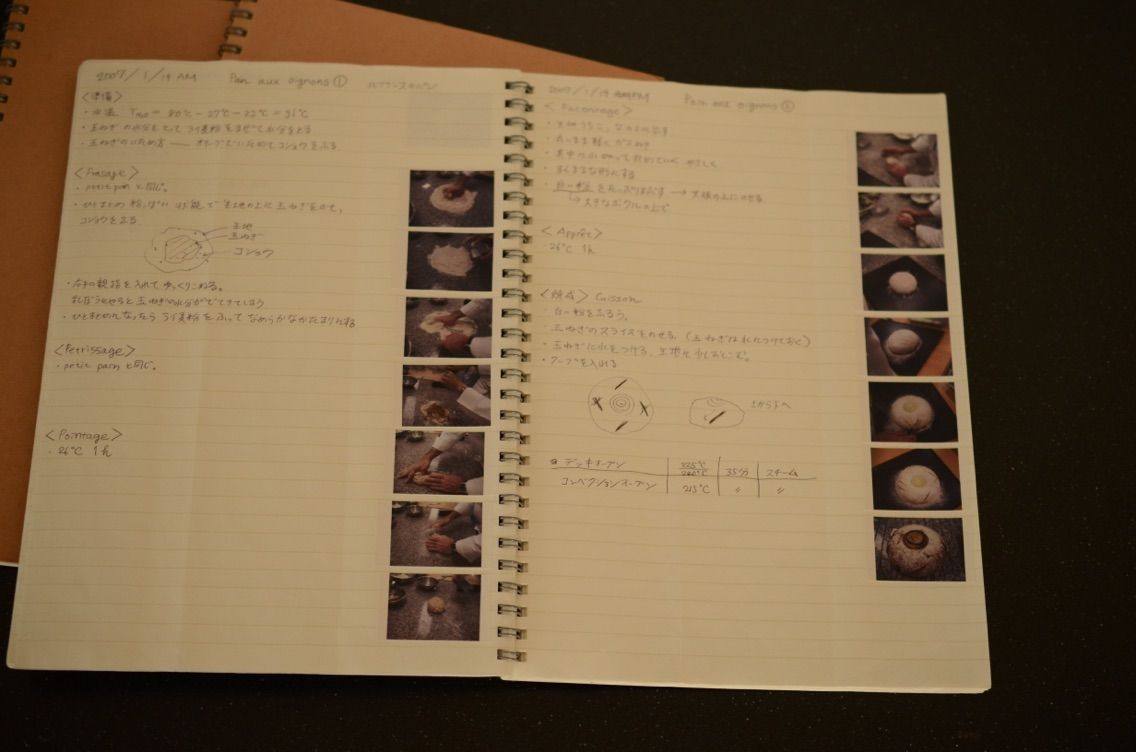 2007/1/19 AM Pan aux oignons ①
〈準備〉
・水温 = 80℃ - 27℃ - 22℃ = 31℃
・玉ねぎの水分をとって ライ麦粉をまぜて水分をとる
・玉ねぎのいため方 — オリーブでいためてコショウをふる
〈Frasage〉
・petit pain と同じ。
・ひとまとめ 粉っぽい 状態で生地の上に玉ねぎをのせ、
コショウをふる
生地
玉ねぎ
コショウ
・右手の親指を入れてゆっくりこねる。
乱ぼうにやると玉ねぎの水分がでてきてしまう
・ひとまとめになったら ライ麦粉をふって なめらかなかたまりにする
〈Petrissage〉
・petit pain と同じ。
〈Pointage〉
・26℃ 1h
2007/1/19 AM Pain aux oignons ②
〈Faconnage〉
・まんまるな形にする
・白い粉をたっぷりまぶす → 天板の上にのせる
↳ 大きなボウルの上で
〈Apprêt〉
26℃ 1h
〈焼成〉 Cuisson
・白い粉をふるう。
・玉ねぎのスライスをのせる (玉ねぎは水につけておく)
・玉ねぎに水をつける、生地に少しおしこむ。
・クープを入れる
上から下へ
デッキオーブン 225℃ 35分 スチーム
コンベクションオーブン 215℃ 〃 〃